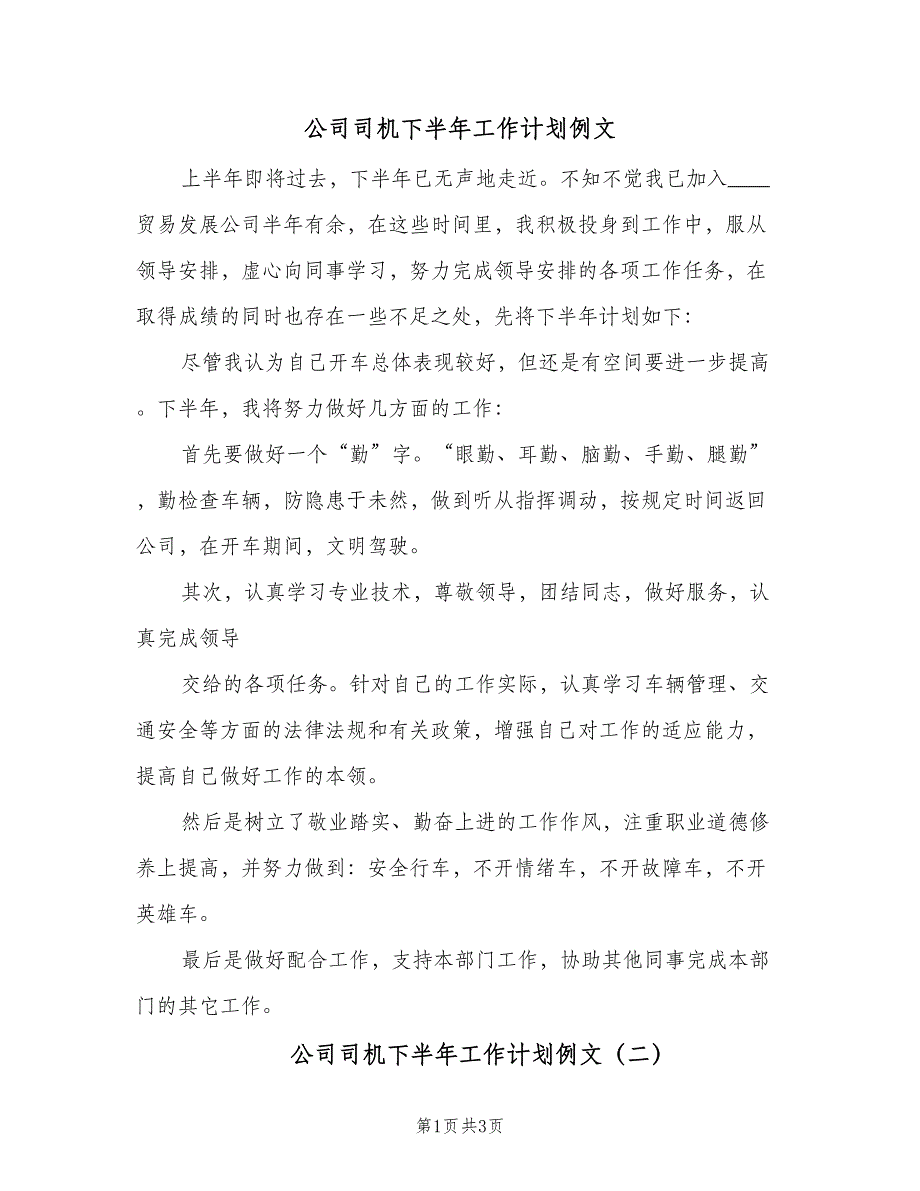 公司司机下半年工作计划例文
上半年即将过去，下半年已无声地走近。不知不觉我已加入____
贸易发展公司半年有余，在这些时间里，我积极投身到工作中，服从
领导安排，虚心向同事学习，努力完成领导安排的各项工作任务，在
取得成绩的同时也存在一些不足之处，先将下半年计划如下：
尽管我认为自己开车总体表现较好，但还是有空间要进一步提高
。下半年，我将努力做好几方面的工作：
首先要做好一个“勤”字。“眼勤、耳勤、脑勤、手勤、腿勤”
，勤检查车辆，防隐患于未然，做到听从指挥调动，按规定时间返回
公司，在开车期间，文明驾驶。
其次，认真学习专业技术，尊敬领导，团结同志，做好服务，认
真完成领导
交给的各项任务。针对自己的工作实际，认真学习车辆管理、交
通安全等方面的法律法规和有关政策，增强自己对工作的适应能力，
提高自己做好工作的本领。
然后是树立了敬业踏实、勤奋上进的工作作风，注重职业道德修
养上提高，并努力做到：安全行车，不开情绪车，不开故障车，不开
英雄车。
最后是做好配合工作，支持本部门工作，协助其他同事完成本部
门的其它工作。
公司司机下半年工作计划例文（二）
第1页 共3页